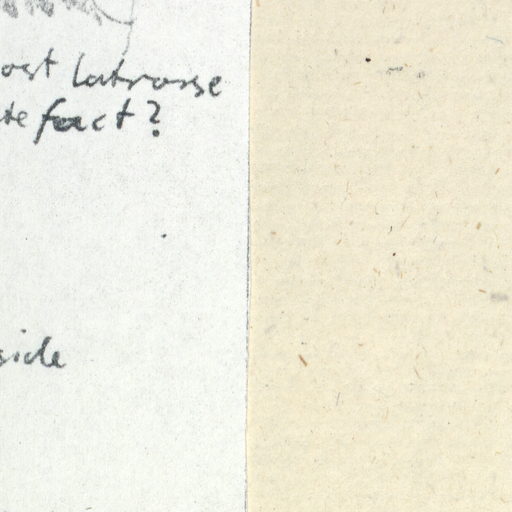 ost Latrosse
te fact?
side